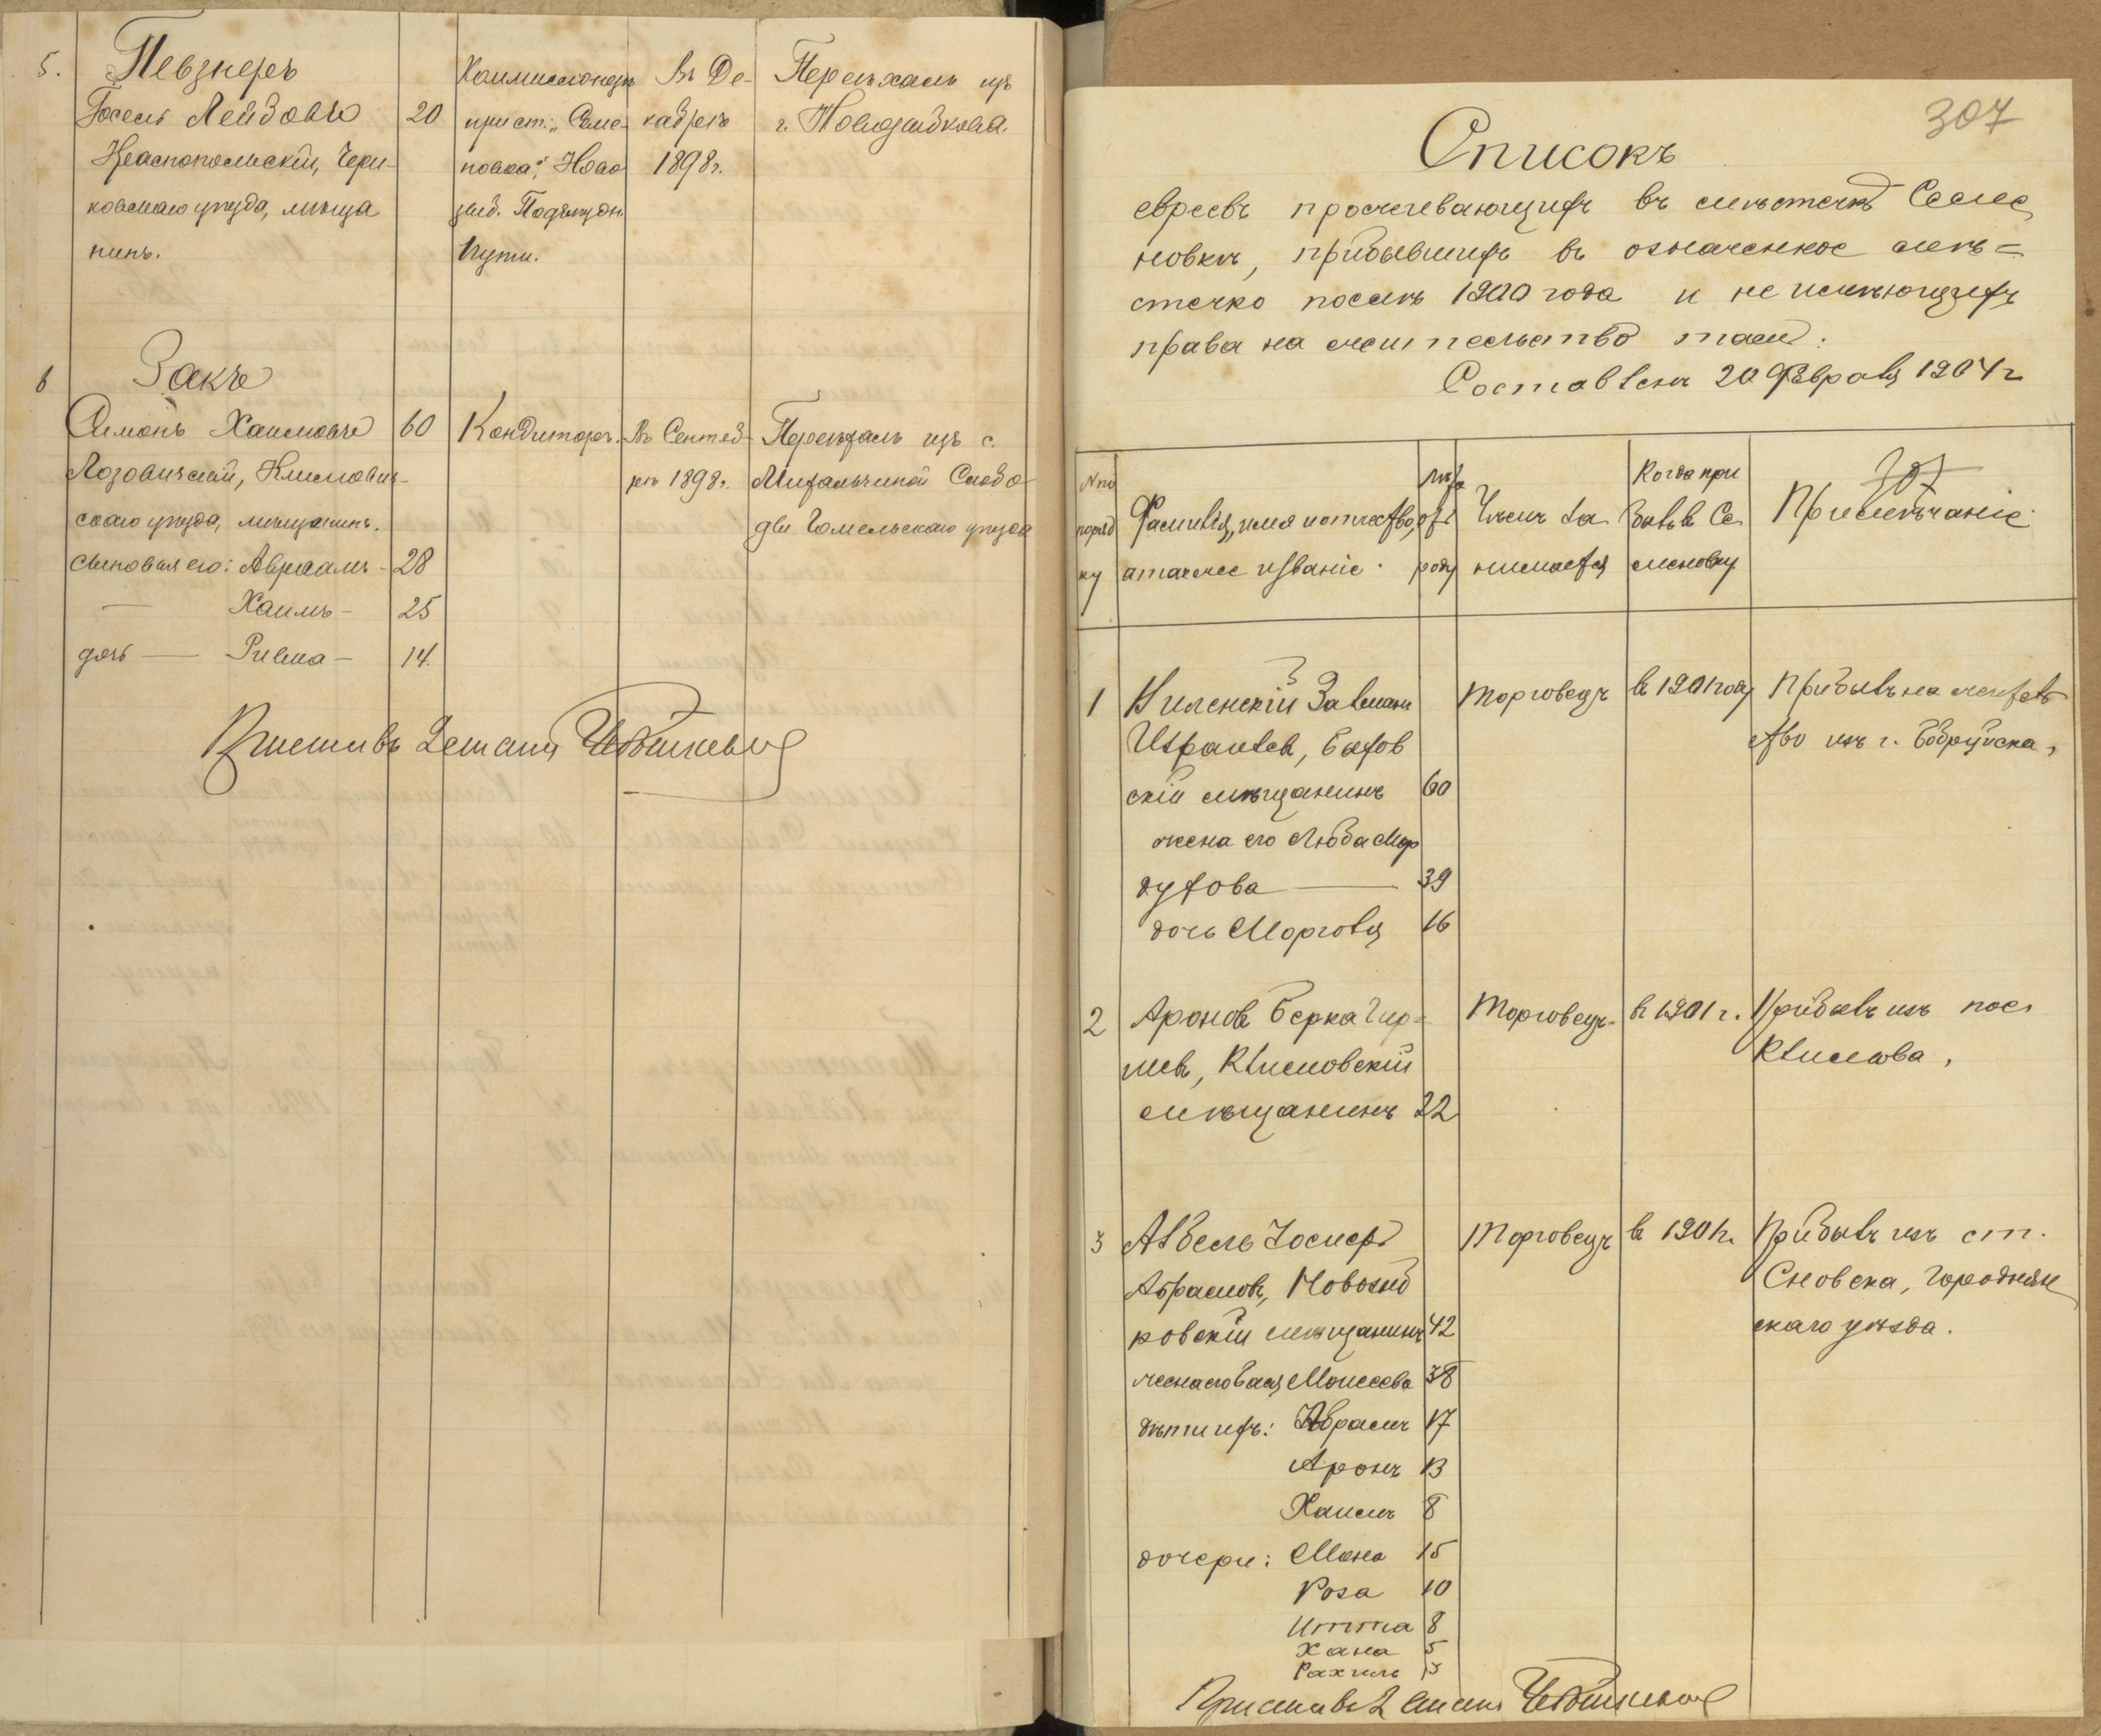 5.
Певзнеръ
Іосель Лейзовъ 20
Краснопольскій, Чери-
ковскаго уѣзда, мѣща
нинъ.
Коммиссіонеръ
при ст. „Семе-
новка", Ново
зыб. Подъѣздн.
Пути.
Въ Де-
кабрѣ
1898 г.
Переѣхалъ изъ
г. Новозыбкова.
6
Закъ
Симонъ Хаимовъ 60
Лозовичскій, Климович-
скаго уѣзда, мѣщанинъ.
сыновья его: Авраамъ - 28
— Хаимъ - 25
дочь — Ривка - 14.
Кондиторъ.
Въ Сентяб-
рѣ 1898 г.
Переѣхалъ изъ с.
Михальчиной Слобо-
ды Гомельскаго уѣзда
Приставъ 2 стана
307
Списокъ
евреевъ проживающихъ въ мѣстечкѣ Семе
новкѣ, прибывшихъ въ означенное мѣ=
стечко послѣ 1900 года и не имѣющихъ
права на жительство тамъ.
Составленъ 20 Февраля 1904 г
№ по
поряд
ку
Фамилія, имя и отчество,
а также званіе.
Лѣта
отъ
роду
Чѣмъ за
нимается
Когда при
былъ въ Се
меновку
307
Примѣчаніе.
1 Виленскій Залманъ
Израилевъ, Быхов
скій мѣщанинъ 60
жена его Люба Мор
духова — 39
дочь Морголя 16
Торговецъ
въ 1901 году
Прибылъ на жительс
тво изъ г. Бобруйска,
2 Ароновъ Берка Гир=
шевъ, Климовскій
мѣщанинъ 22
Торговецъ
въ 1901 г.
Прибылъ изъ пос.
Климова,
3 Абель Іосифъ
Абрамовъ, Новозыб
ковскій мѣщанинъ 42
жена его Бася Моисеева 38
дѣти ихъ: Абрамъ 17
Аронъ 13
Хаимъ 8
дочери: Маня 15
Роза 10
Итта 8
Хана 5
Рахиль 3
Торговецъ
въ 1901 г.
Прибылъ изъ ст.
Сновска, Городнян
скаго уѣзда.
Приставъ 2 стана